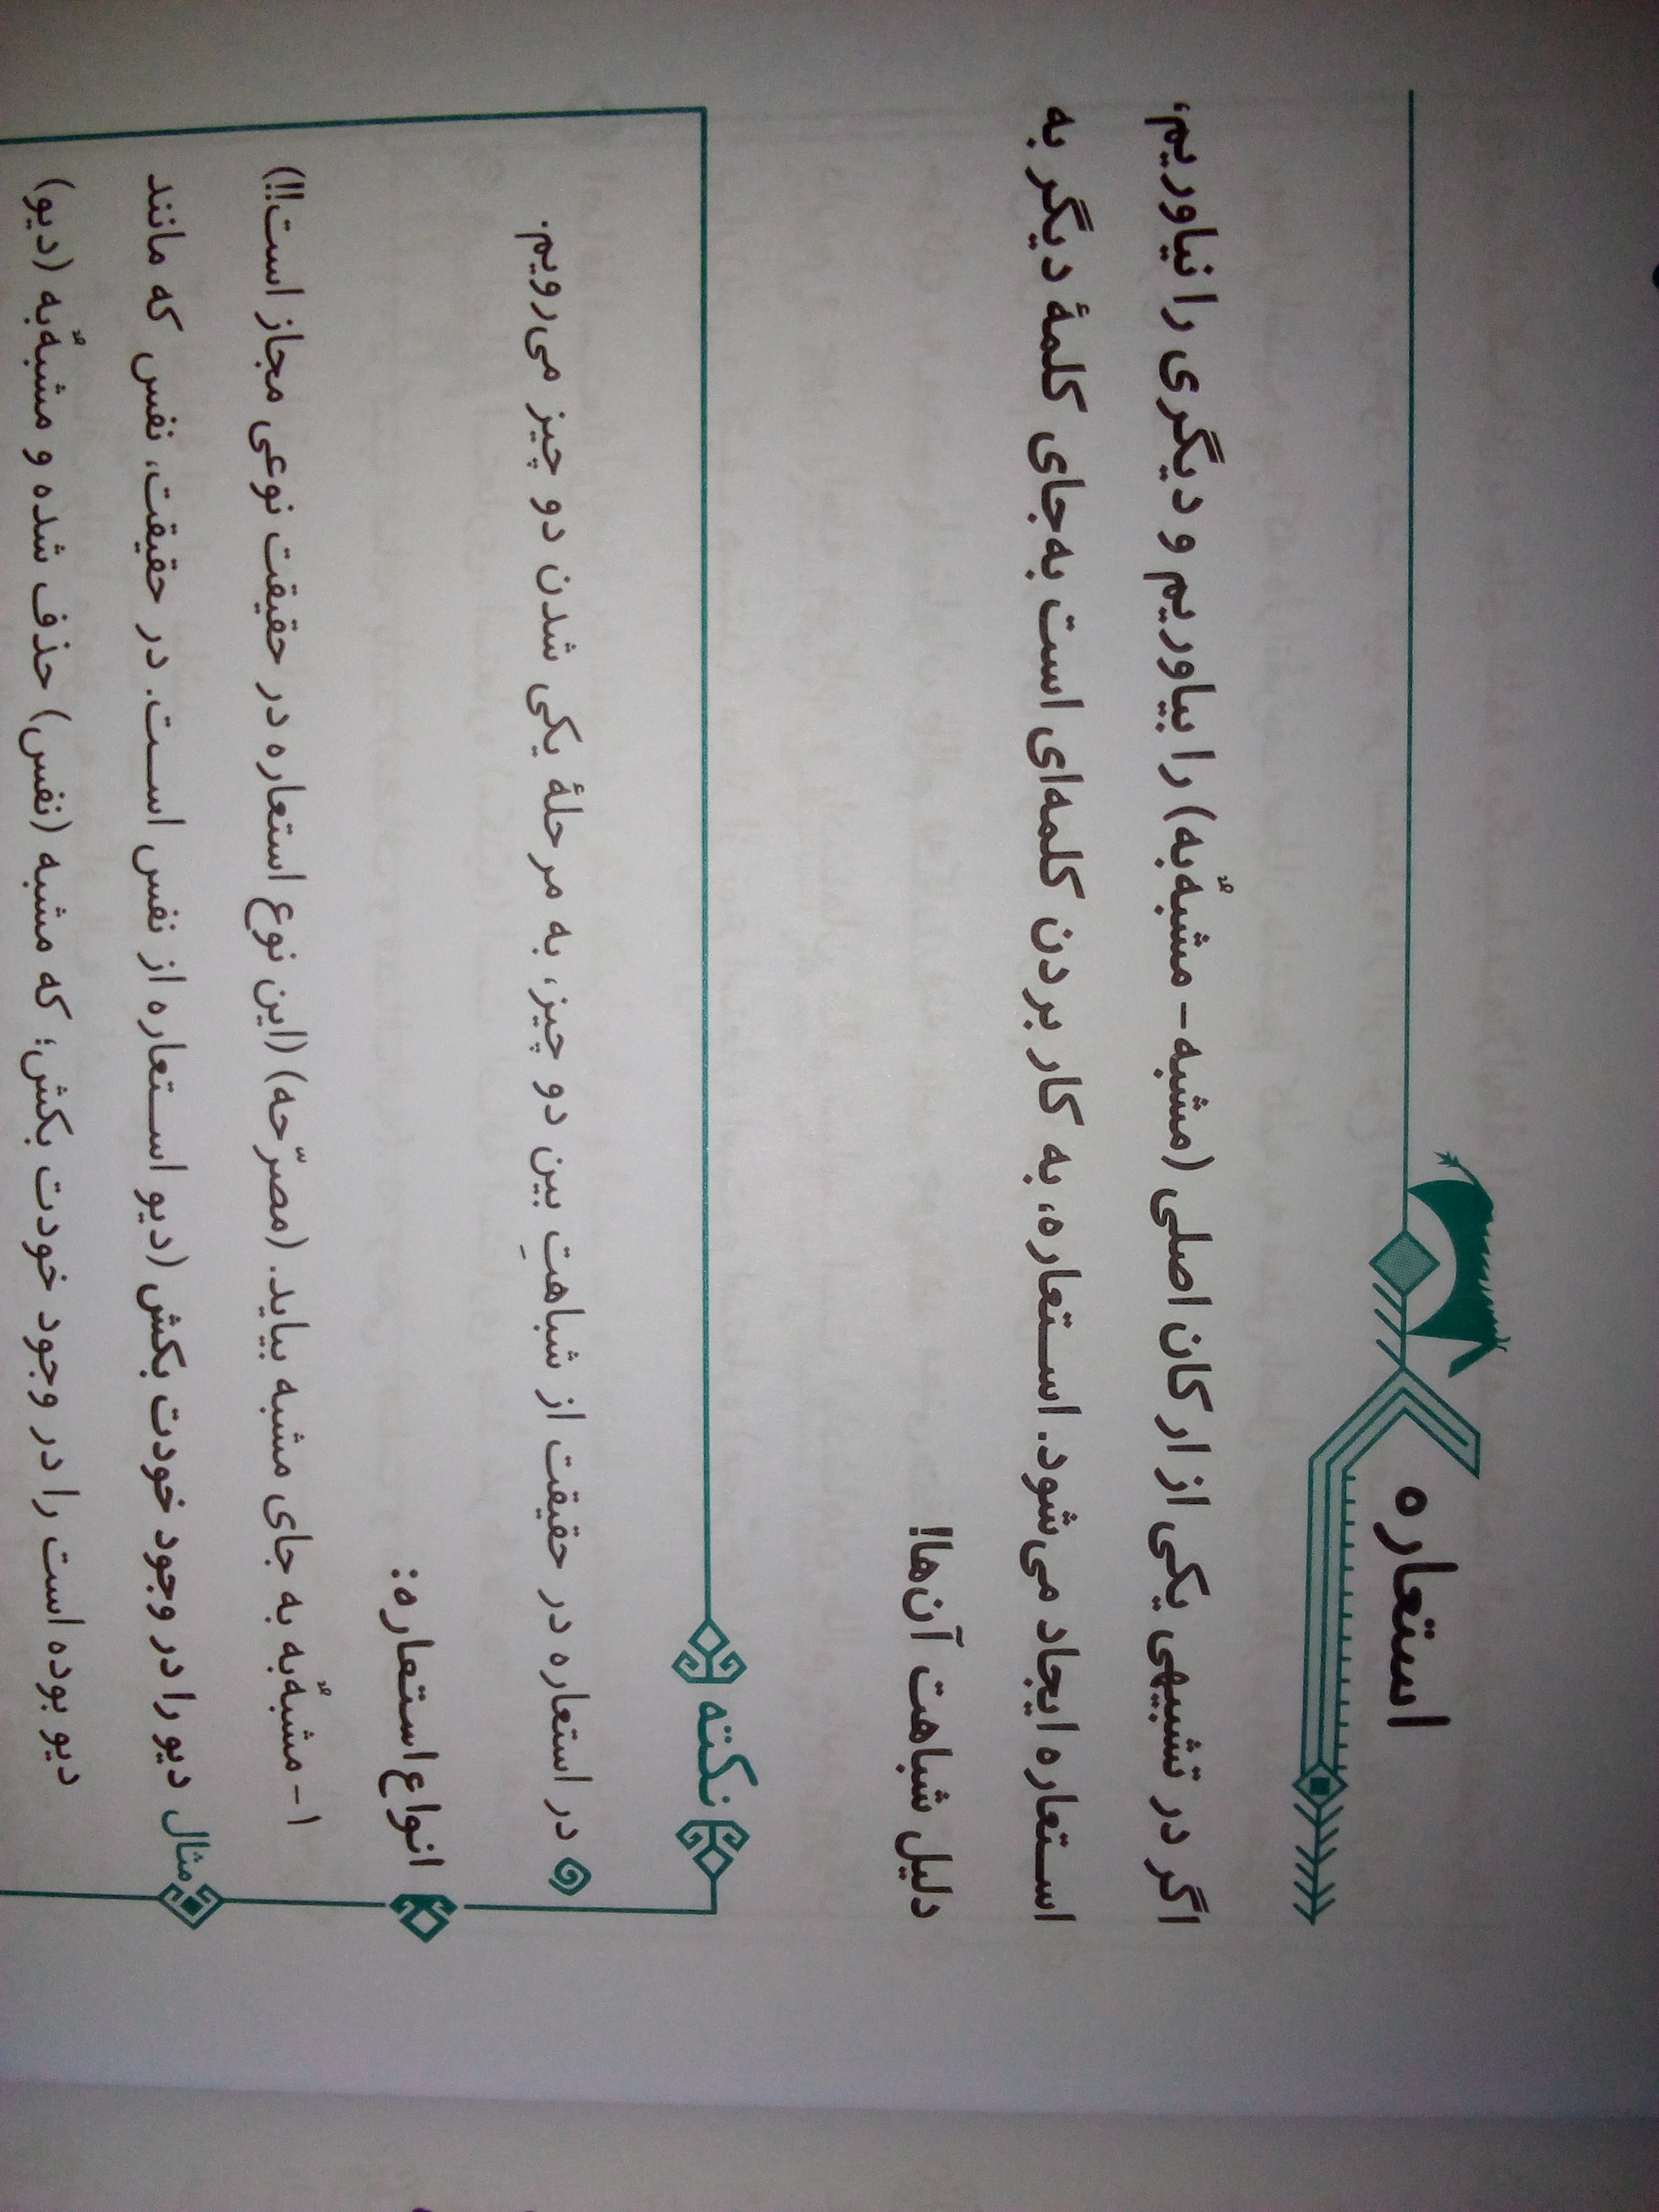 استعاره
اگر در تشبیهی یکی از ارکان اصلی (مشبه - مشبّهٌ‌به) را بیاوریم و دیگری را نیاوریم،
استعاره ایجاد می‌شود. استعاره، به کار بردن کلمه‌ای است به‌جای کلمهٔ دیگر به
دلیل شباهت آن‌ها!
نکته
در استعاره در حقیقت از شباهتِ بین دو چیز، به مرحلهٔ یکی شدن دو چیز می‌رویم.
انواع استعاره:
۱- مشبّهٌ‌به به جای مشبه بیاید. (مصرّحه) (این نوع استعاره در حقیقت نوعی مجاز است!!)
مثال دیو را در وجود خودت بکش (دیو استعاره از نفس است. در حقیقت، نفس که مانند
دیو بوده است را در وجود خودت بکش؛ که مشبه (نفس) حذف شده و مشبّهٌ‌به (دیو)